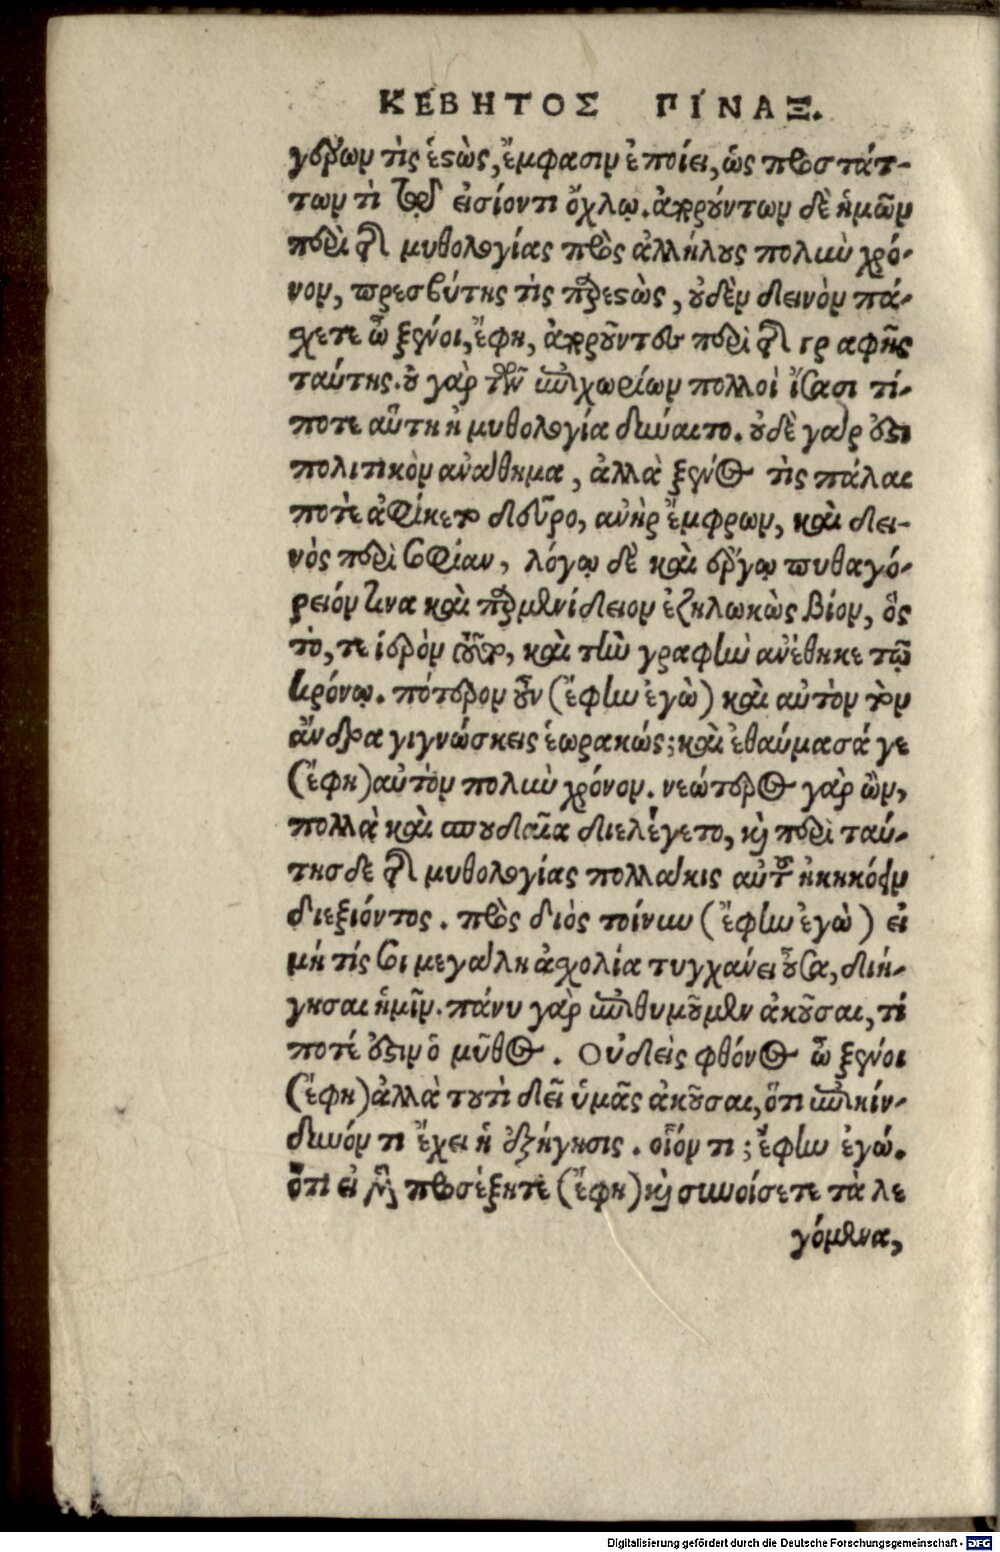 ΚΕΒΗΤΟΣ ΠΙΝΑΞ.
γέρων τὶς ἑστὼς, ἔμφασιν ἐποίει, ὡς προστάτ-
των τὶ τῷ εἰσίοντι ὄχλῳ. ἀπορούντων δὲ ἡμῶν
περὶ τῆς μυθολογίας πρὸς ἀλλήλους πολὺν χρό-
νον, πρεσβύτης τὶς παρεστὼς, οὐδὲν δεινὸν πά-
χετε ὦ ξένοι, ἔφη, ἀποροῦντες περὶ τῆς γραφῆς
ταύτης. οὐ γὰρ τῶν ἐπιχωρίων πολλοὶ ἴσασι τί-
ποτε αὕτη ἡ μυθολογία δύναιτο. οὐδὲ γὰρ ἐστι
πολιτικὸν ἀνάθημα, ἀλλὰ ξένος τὶς πάλαι
ποτὲ ἀφίκετο δεῦρο, ἀνὴρ ἔμφρων, καὶ δει-
νὸς περὶ σοφίαν, λόγῳ δὲ καὶ ἔργῳ πυθαγό-
ρειόν τινα καὶ παρμενίδειον ἐζηλωκὼς βίον, ὃς
τό, τε ἱερὸν τοῦτο, καὶ τὴν γραφὴν ἀνέθηκε τῷ
κρόνῳ. πότερον οὖν (ἔφην ἐγὼ) καὶ αὐτὸν τὸν
ἄνδρα γιγνώσκεις ἑωρακώς; καὶ ἐθαύμασά γε
(ἔφη) αὐτὸν πολὺν χρόνον. νεώτερος γὰρ ὢν,
πολλὰ καὶ σπουδαῖα διελέγετο, καὶ περὶ ταύ-
της δὲ τῆς μυθολογίας πολλάκις αὐτοῦ ἠκηκόειν
διεξιόντος. πρὸς διὸς τοίνυν (ἔφην ἐγὼ) εἰ
μή τίς σοι μεγάλη ἀχολία τυγχάνει οὖσα, διή-
γησαι ἡμῖν. πάνυ γὰρ ἐπιθυμοῦμεν ἀκοῦσαι, τί
ποτέ ἐστιν ὁ μῦθος. Οὐδεὶς φθόνος ὦ ξένοι
(ἔφη) ἀλλὰ τουτὶ δεῖ ὑμᾶς ἀκοῦσαι, ὅτι ἐπικίν-
δυνόν τι ἔχει ἡ ἐξήγησις. οἷόν τι; ἔφην ἐγώ.
ὅτι εἰ μὲν προσέξητε (ἔφη) καὶ συνοίσετε τὰ λε
γόμενα,
Digitalisierung gefördert durch die Deutsche Forschungsgemeinschaft - DFG